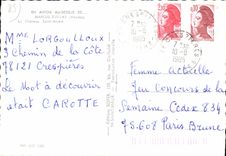 Mme LORGOULLOUX
3 chemin de la Côte
78121 Crespières
Le Mot à découvrir
était CAROTTE
Femme Actuelle
Jeu CONCOURS de la
Semaine Cedex 834
75.608 Paris Brune